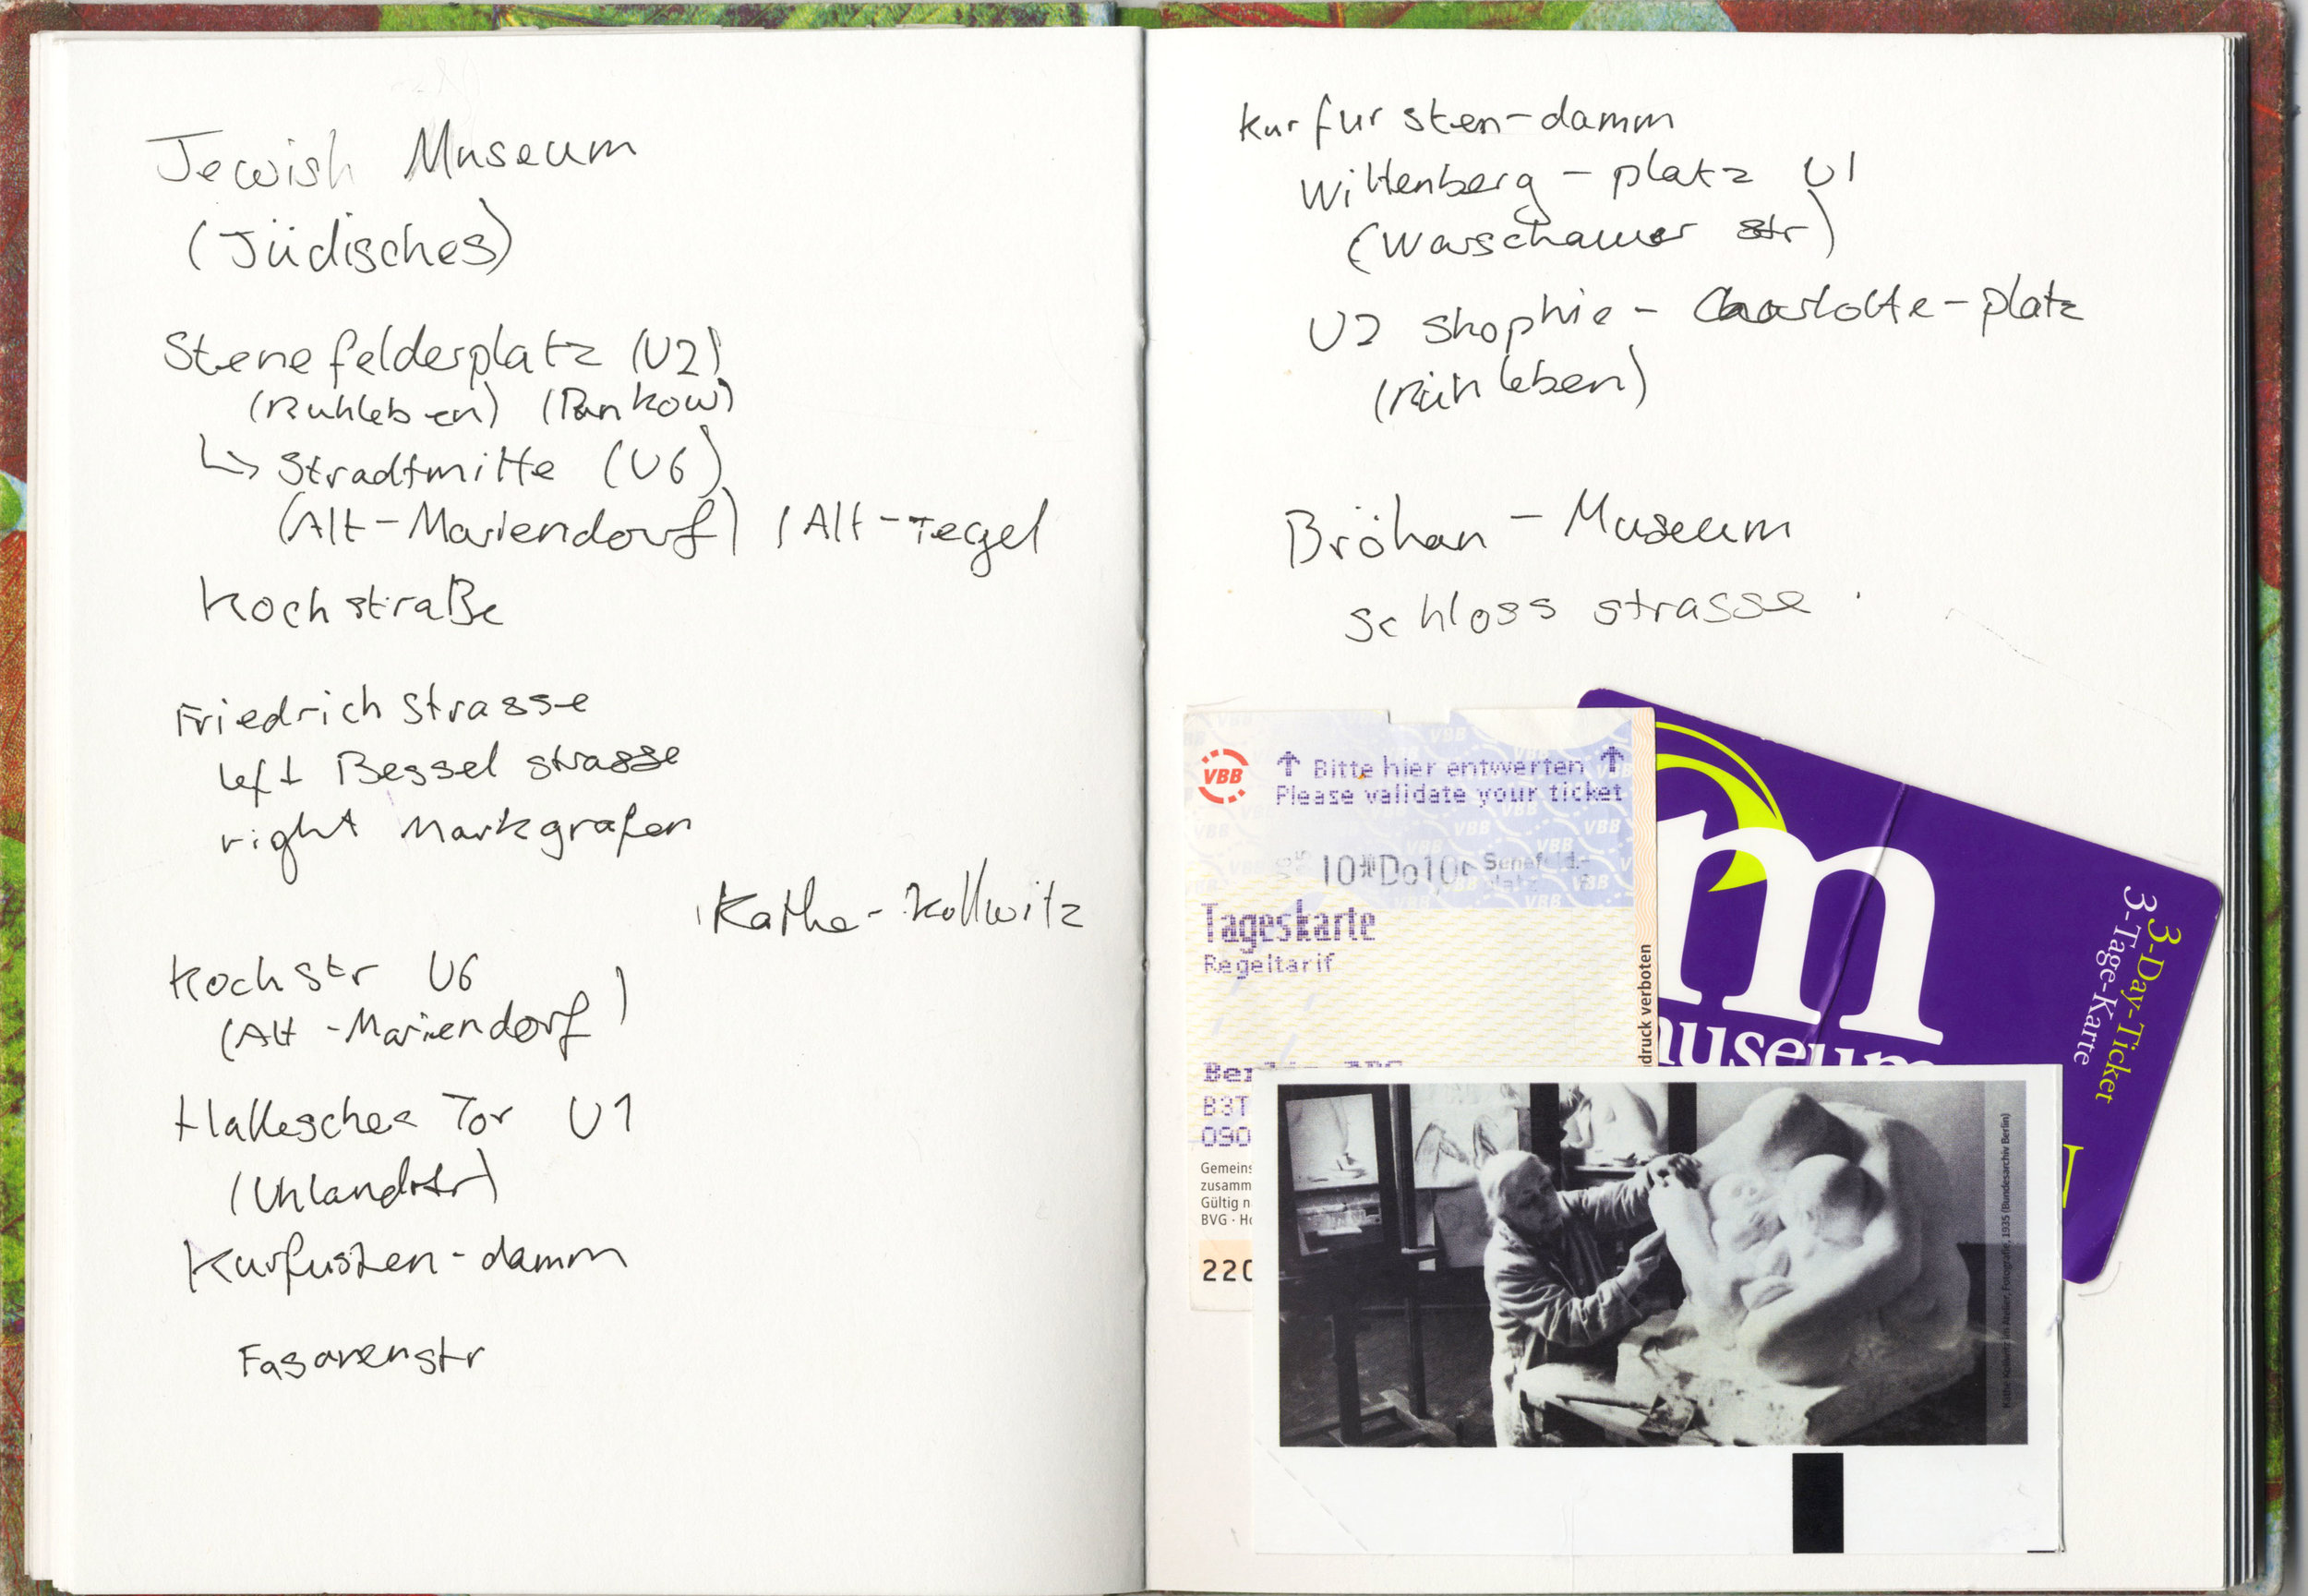 Jewish Museum
(Jüdisches)
Stenefelderplatz (U2)
(Ruhleben) (Pankow)
↳ Stradtmitte (U6)
(Alt-Mariendorf) (Alt-Tegel
Kochstraße
Friedrichstrasse
left Bessel strasse
right Markgrafen
Kathe-Kollwitz
Kochstr U6
(Alt-Mariendorf)
Hallesches Tor U1
(Uhlandstr)
Kurfusten-damm
Fasanenstr
Kurfursten-damm
Wittenberg-platz U1
(Warschauer str)
U2 Shophie-Charlotte-platz
(Rühleben)
Bröhan-Museum
Schloss strasse
VBB
↑ Bitte hier entwerten ↑
Please validate your ticket
Tageskarte
Regeltarif
druck verboten
B3T
090
Gemeins
zusamm
Gültig n
BVG · Ho
220
m
museum
3-Day-Ticket
3-Tage-Karte
Käthe Kollwitz im Atelier, Fotografie, 1935 (Bundesarchiv Berlin)